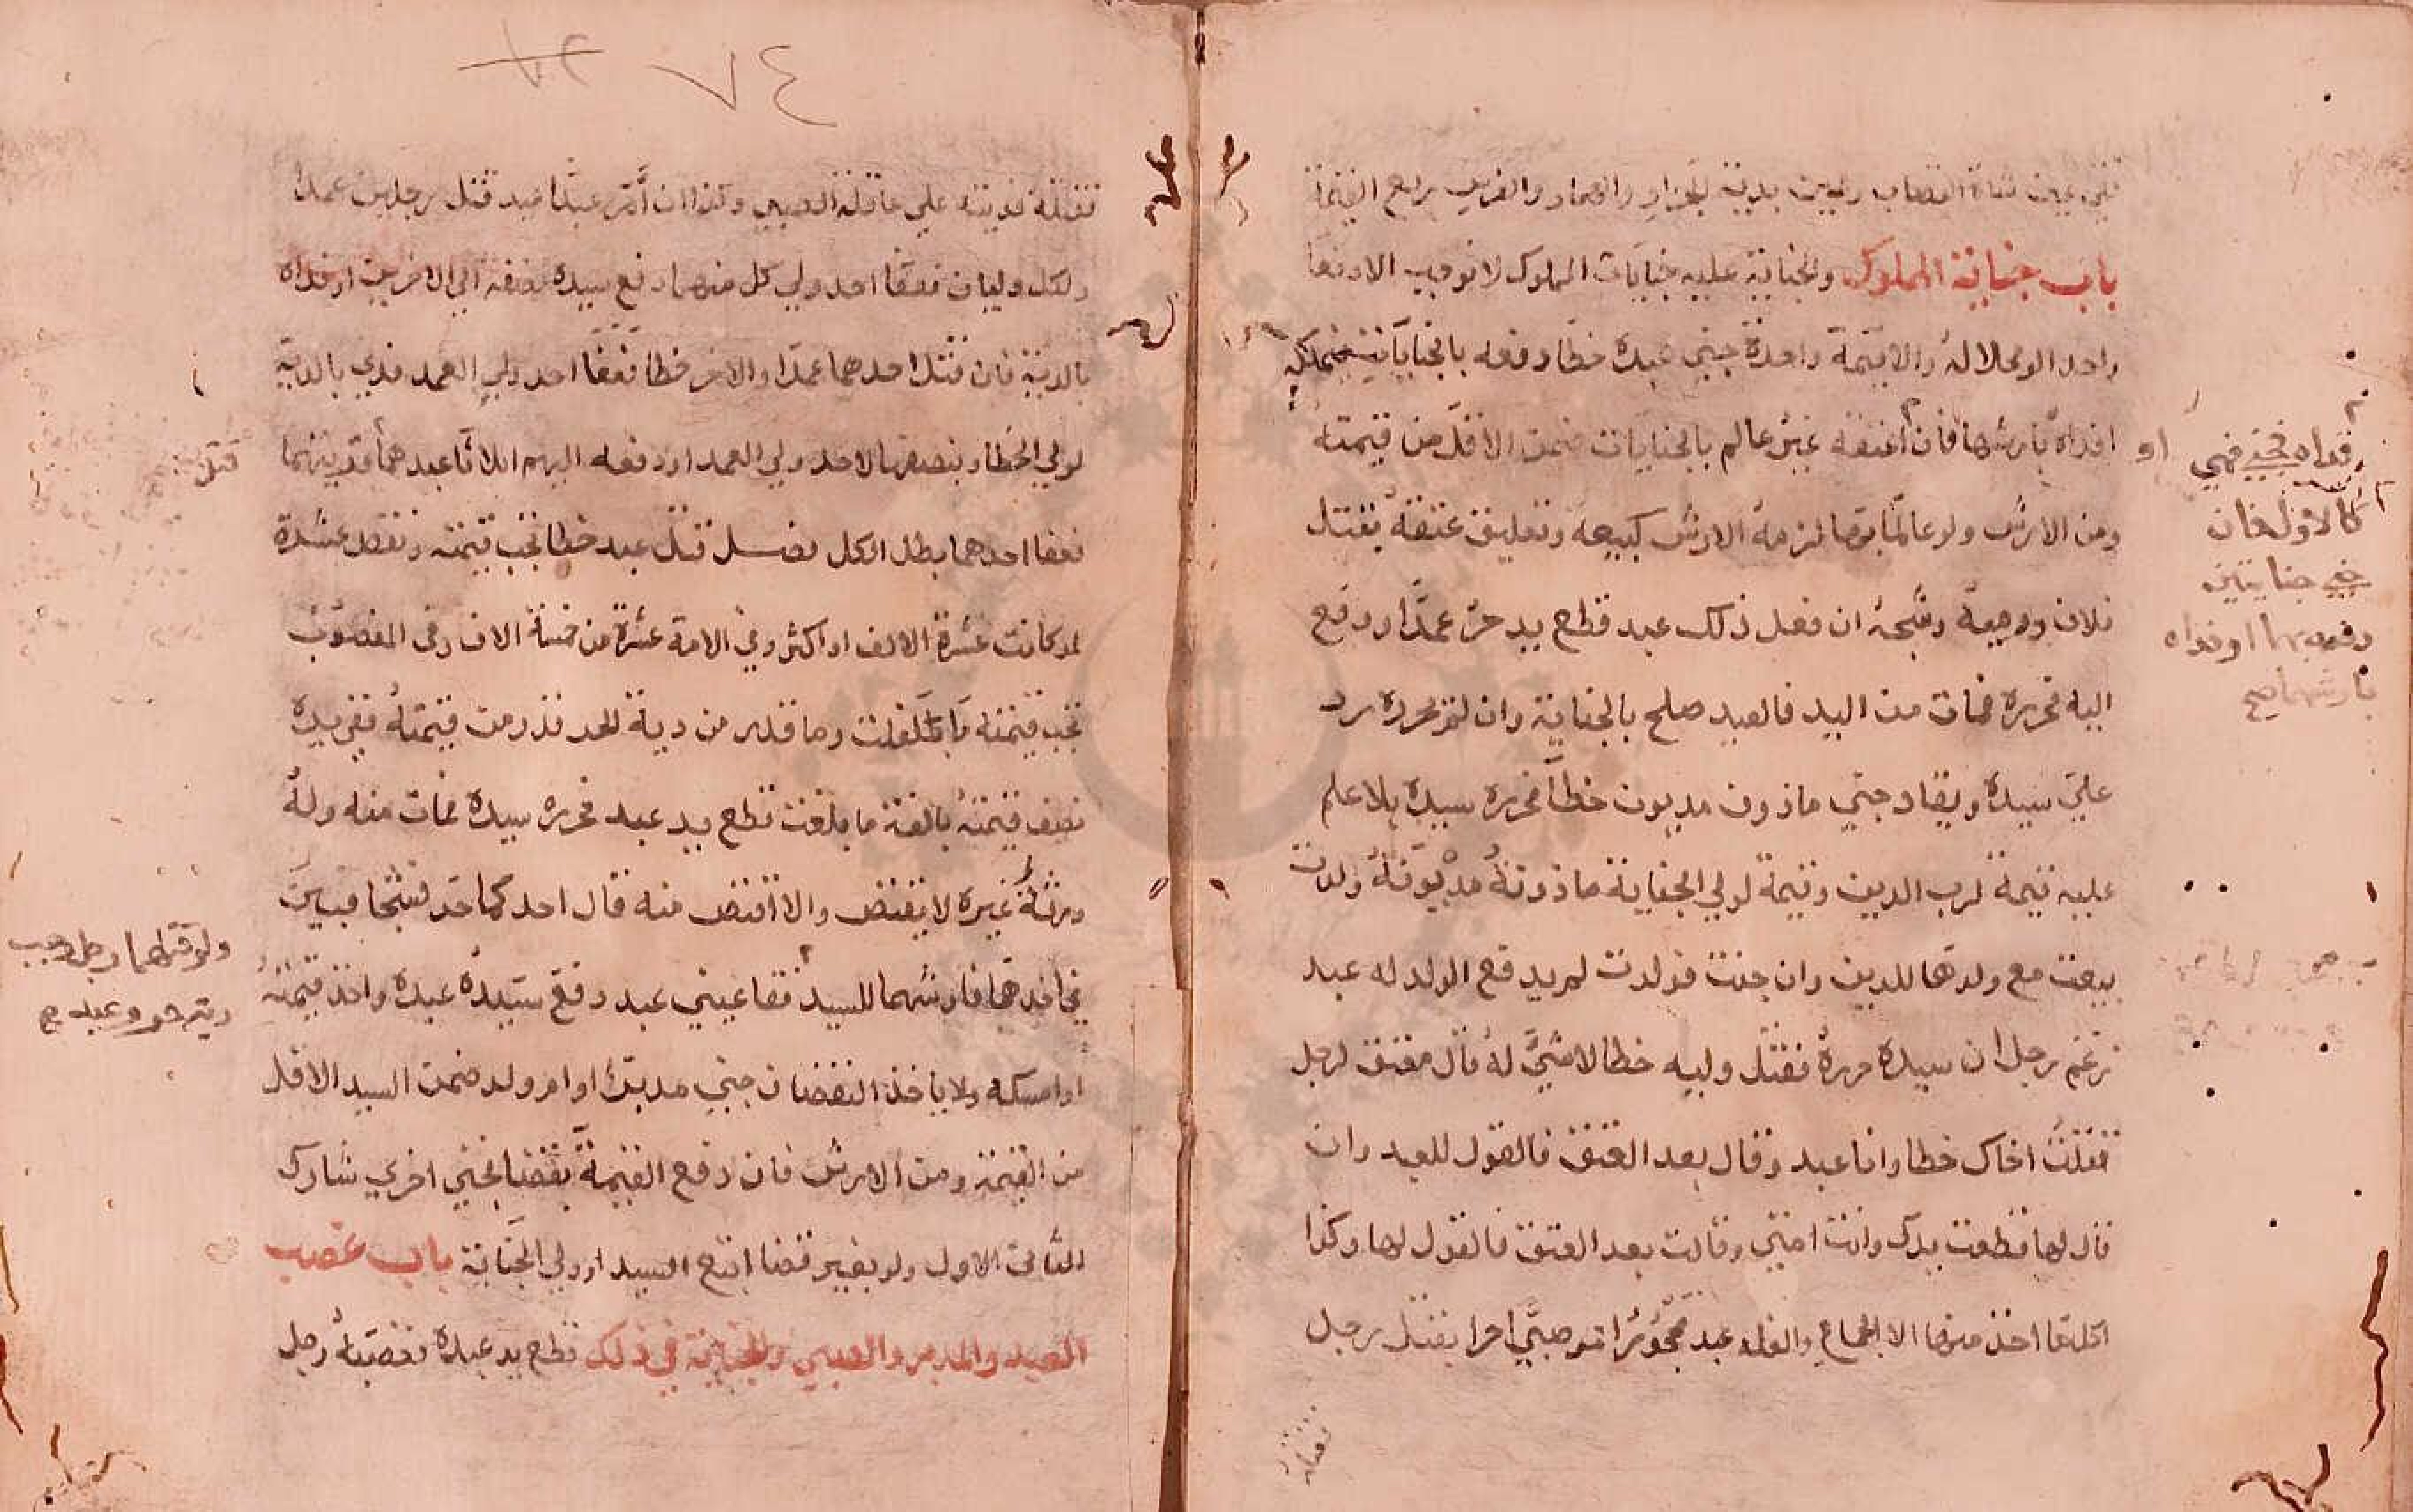 في عين شاة القصاب وعين بدنة الجزار والحمار والفرس ربع القيمة
باب جناية المملوك والجناية عليه جنايات المملوك لا توجب الا دفعا
واحدا لو محلا له والا قيمة واحدة جني عبده خطا دفعه بالجناية فيملكه
او فداه بارشها فان اعتقه غير عالم بالجنايات ضمن الاقل من قيمته
ومن الارش ولو عالما بها لزمه الارش كبيعه وتعليق عتقه بقتل
فلان ورميه وشجه ان فعل ذلك عبد قطع يد حر عمدا ودفع
اليه فحرره فمات من اليد فالعبد صلح بالجناية وان لم يحرره رد
علي سيده ويقاد جني ماذون مديون خطا فحرره سيده بلا علم
عليه قيمة لرب الدين وقيمة لولي الجناية ماذونة مديونة ولدت
بيعت مع ولدها للدين وان جنت فولدت لم يدفع الولد له عبد
زعم رجل ان سيده حرره فقتل وليه خطا لا شي له قال معتق لرجل
قتلت اخاك خطا وانا عبد وقال بعد العتق فالقول للعبد وان
قال لها قطعت يدك وانت امتي وقالت بعد العتق فالقول لها وكذا
كلما اخذ منها الا الجماع والغلة عبد محجور امر صبيا حرا بقتل رجل
فقتله
فداه فجني فهي
كالاول فان
جني جنايتين
دفعه بهما او فداه
بارشهما صح
٧٤
فقتله فديته علي عاقلة الصبي وكذا ان امر عبدا عبد قتل رجلين عمدا
ولكل وليان فعفا احد ولي كل منهما دفع سيده نصفه الي الاخرين او فداه
بالدية فان قتل احدهما عمدا والاخر خطا فعفا احد ولي العمد فدي بالدية
لولي الخطا وبنصفها لاحد ولي العمد او دفعه اليهم اثلاثا عبدهما قريبهما
فعفا احدهما بطل الكل فصل قتل عبد خطا تجب قيمته ونقص عشرة
لو كانت عشرة الالف او اكثر وفي الامة عشرة من خمسة الاف وفي المغصوب
تجب قيمته ما بلغت وما قدر من دية الحر قدر من قيمته ففي يده
نصف قيمته بالغة ما بلغت قطع يد عبد فحرره سيده فمات منه وله
ورثة غيره لا يقتص والا اقتص منه قال احدكما حر فشجا فبين
في احدهما فارشهما للسيد فقا عيني عبد دفع سيده عبده واخذ قيمته
او امسكه ولا ياخذ النقصان جني مدبر او ام ولد ضمن السيد الاقل
من القيمة ومن الارش فان دفع القيمة بقضا فجني اخري شارك
الثاني الاول ولو بغير قضا اتبع السيد او ولي الجناية باب غصب
العبد والمدبر والصبي والجناية في ذلك قطع يد عبده فغصبه رجل
قتل
ولو قتلهما رجل وجب
دية حر وعبد صح